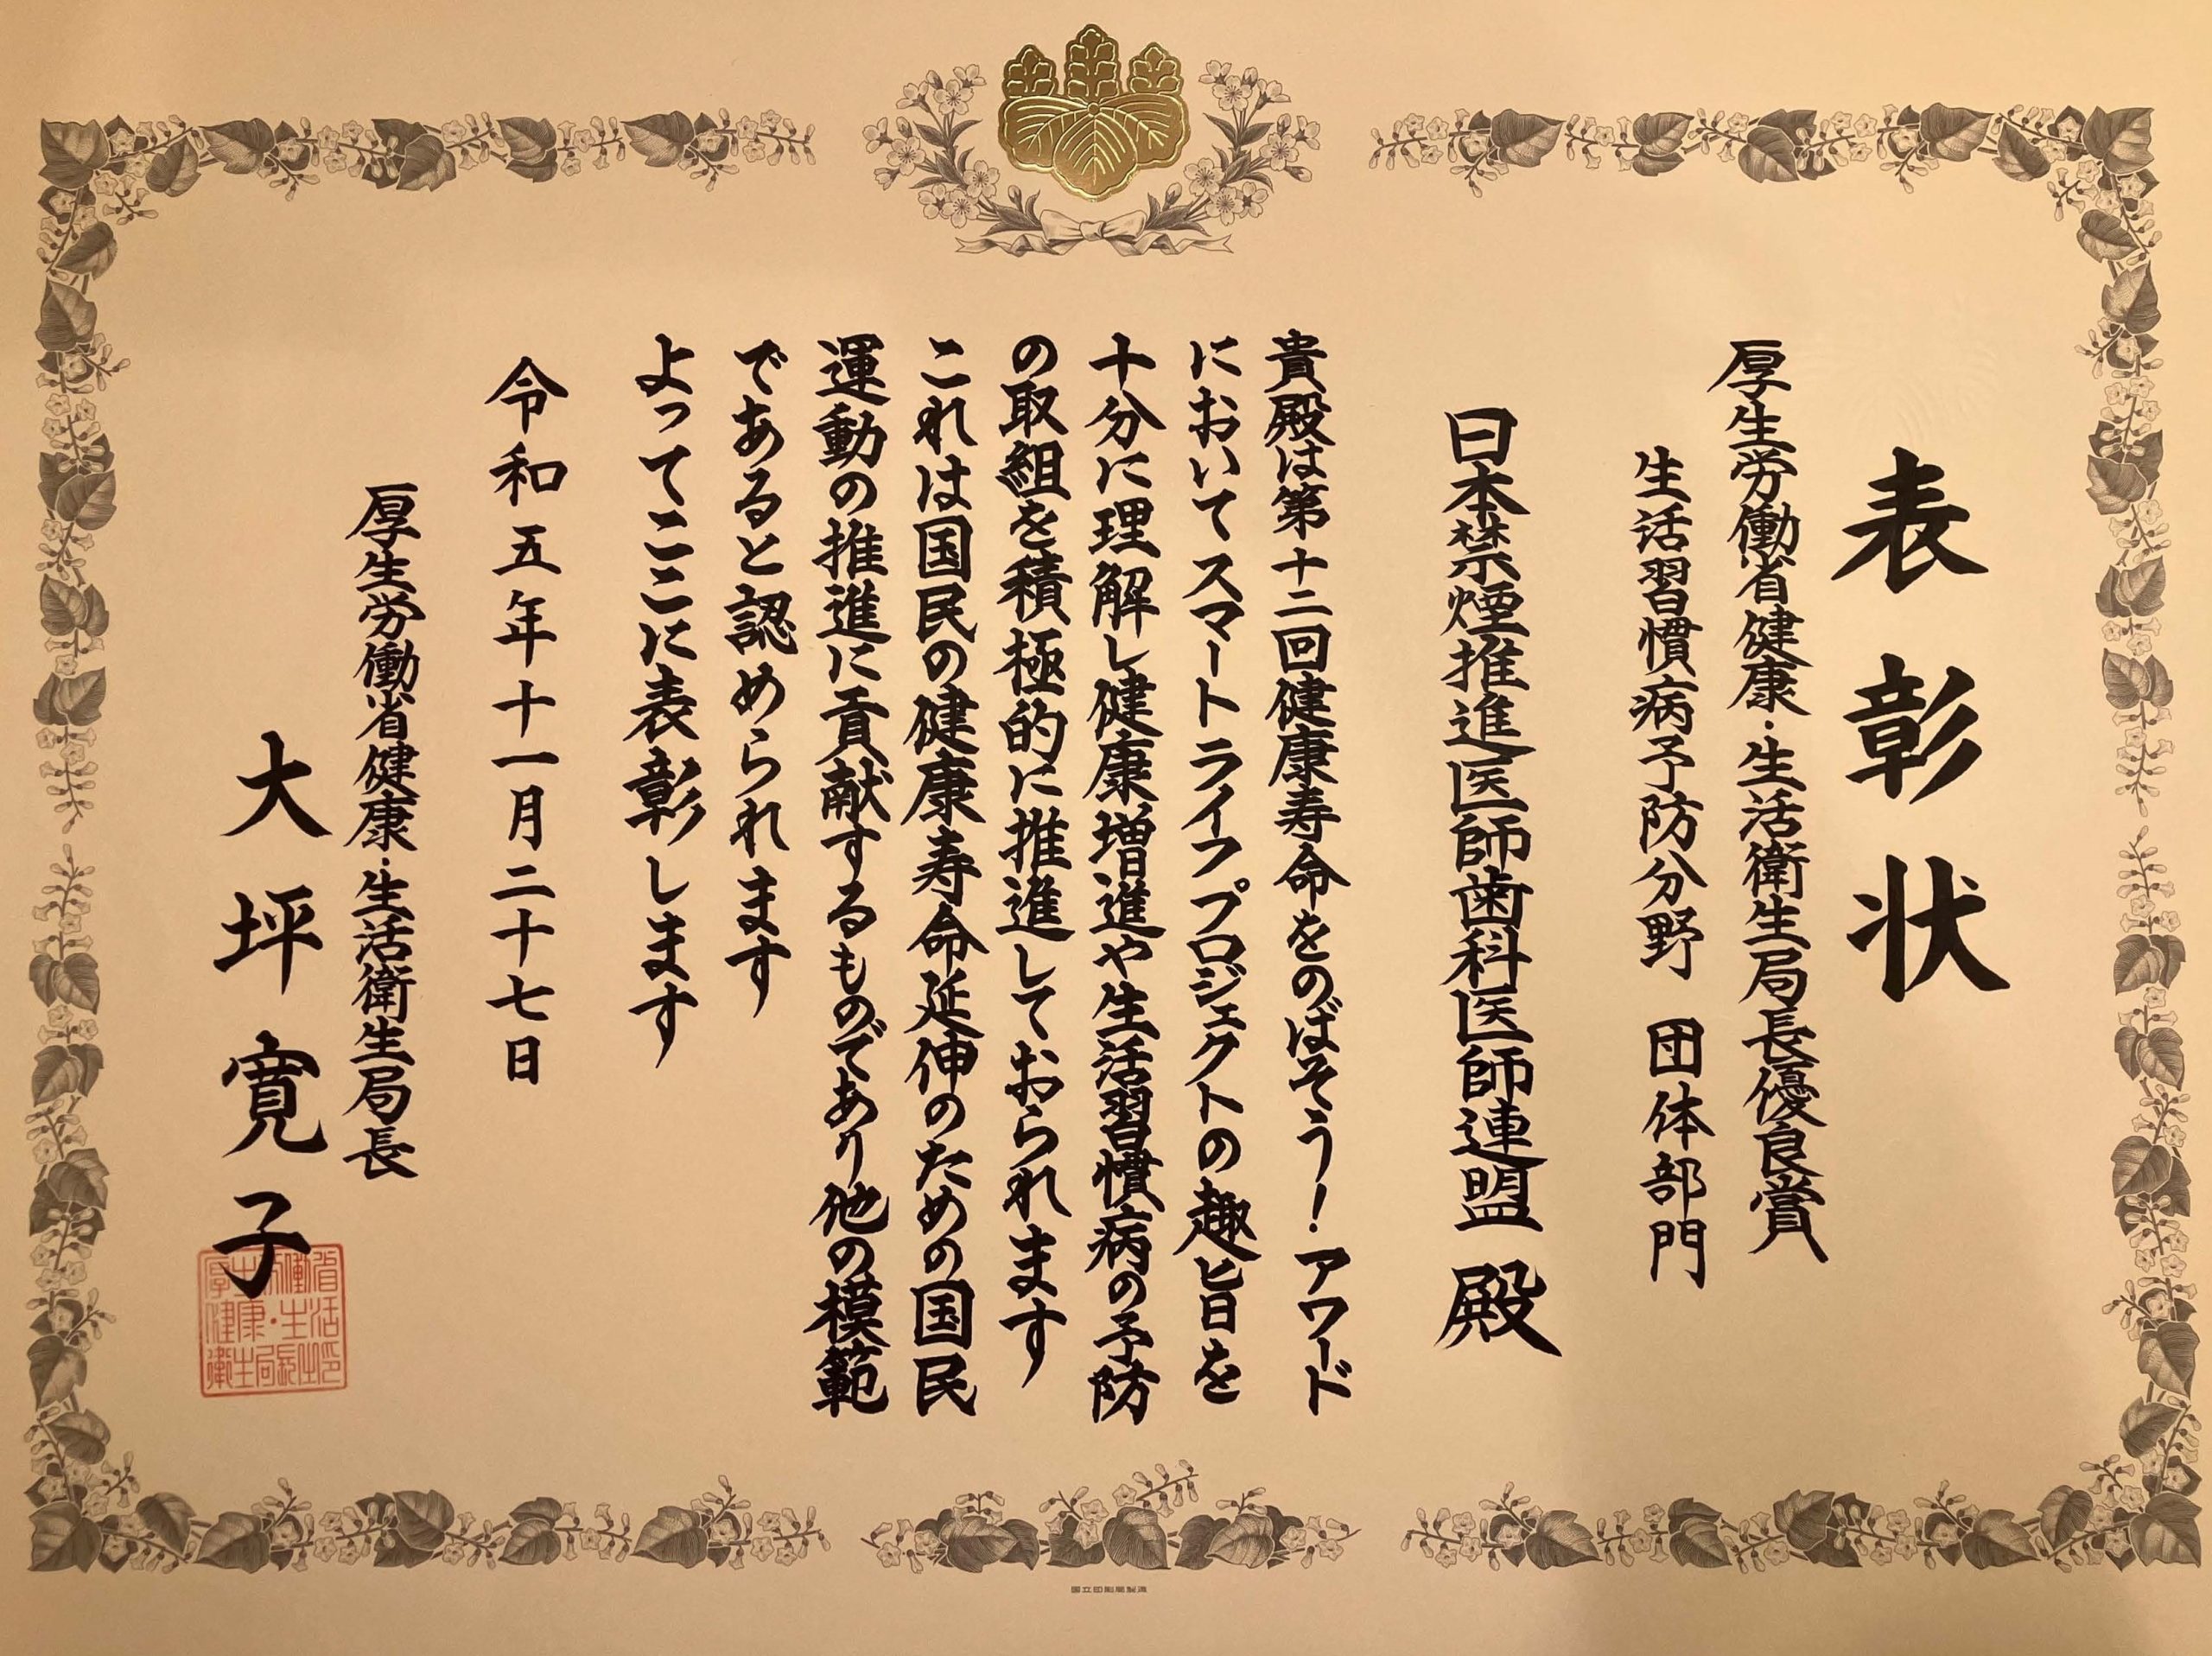 表彰状
厚生労働省健康・生活衛生局長優良賞
生活習慣病予防分野 団体部門
日本禁煙推進医師歯科医師連盟 殿
貴殿は第十二回健康寿命をのばそう！アワード
においてスマートライフプロジェクトの趣旨を
十分に理解し健康増進や生活習慣病の予防
の取組を積極的に推進しておられます
これは国民の健康寿命延伸のための国民
運動の推進に貢献するものであり他の模範
であると認められます
よってここに表彰します
令和五年十一月二十七日
厚生労働省健康・生活衛生局長
大坪寛子
厚生労働省
健康・生活
衛生局長印
国立印刷局製造